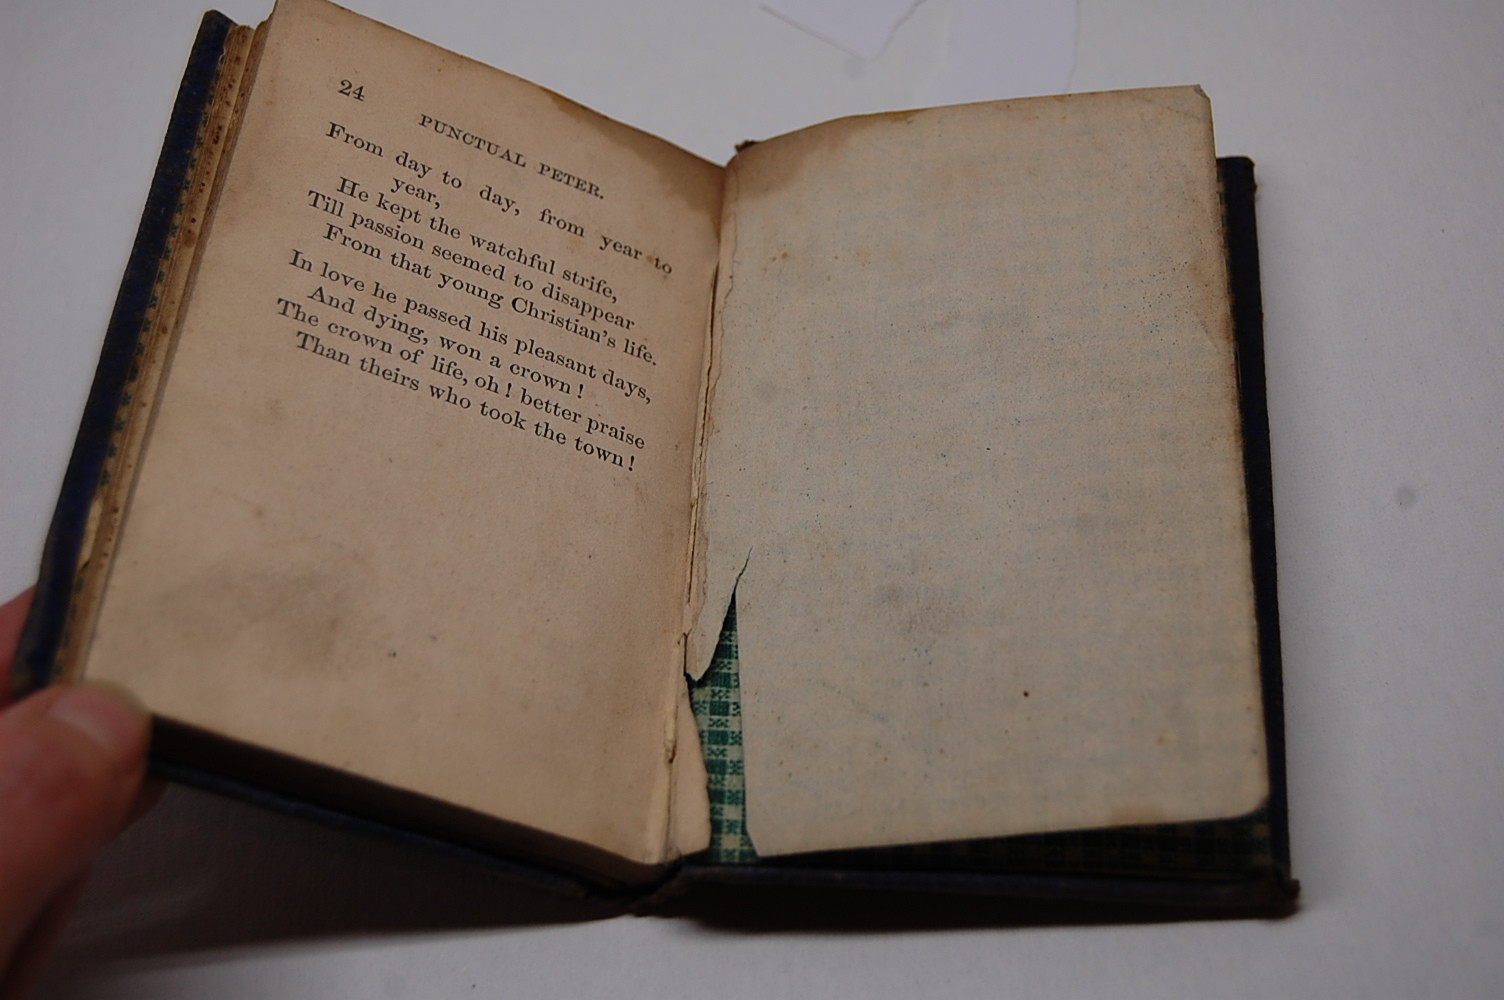 24
PUNCTUAL PETER.
From day to day, from year to
year,
He kept the watchful strife,
Till passion seemed to disappear
From that young Christian's life.
In love he passed his pleasant days,
And dying, won a crown!
The crown of life, oh! better praise
Than theirs who took the town!